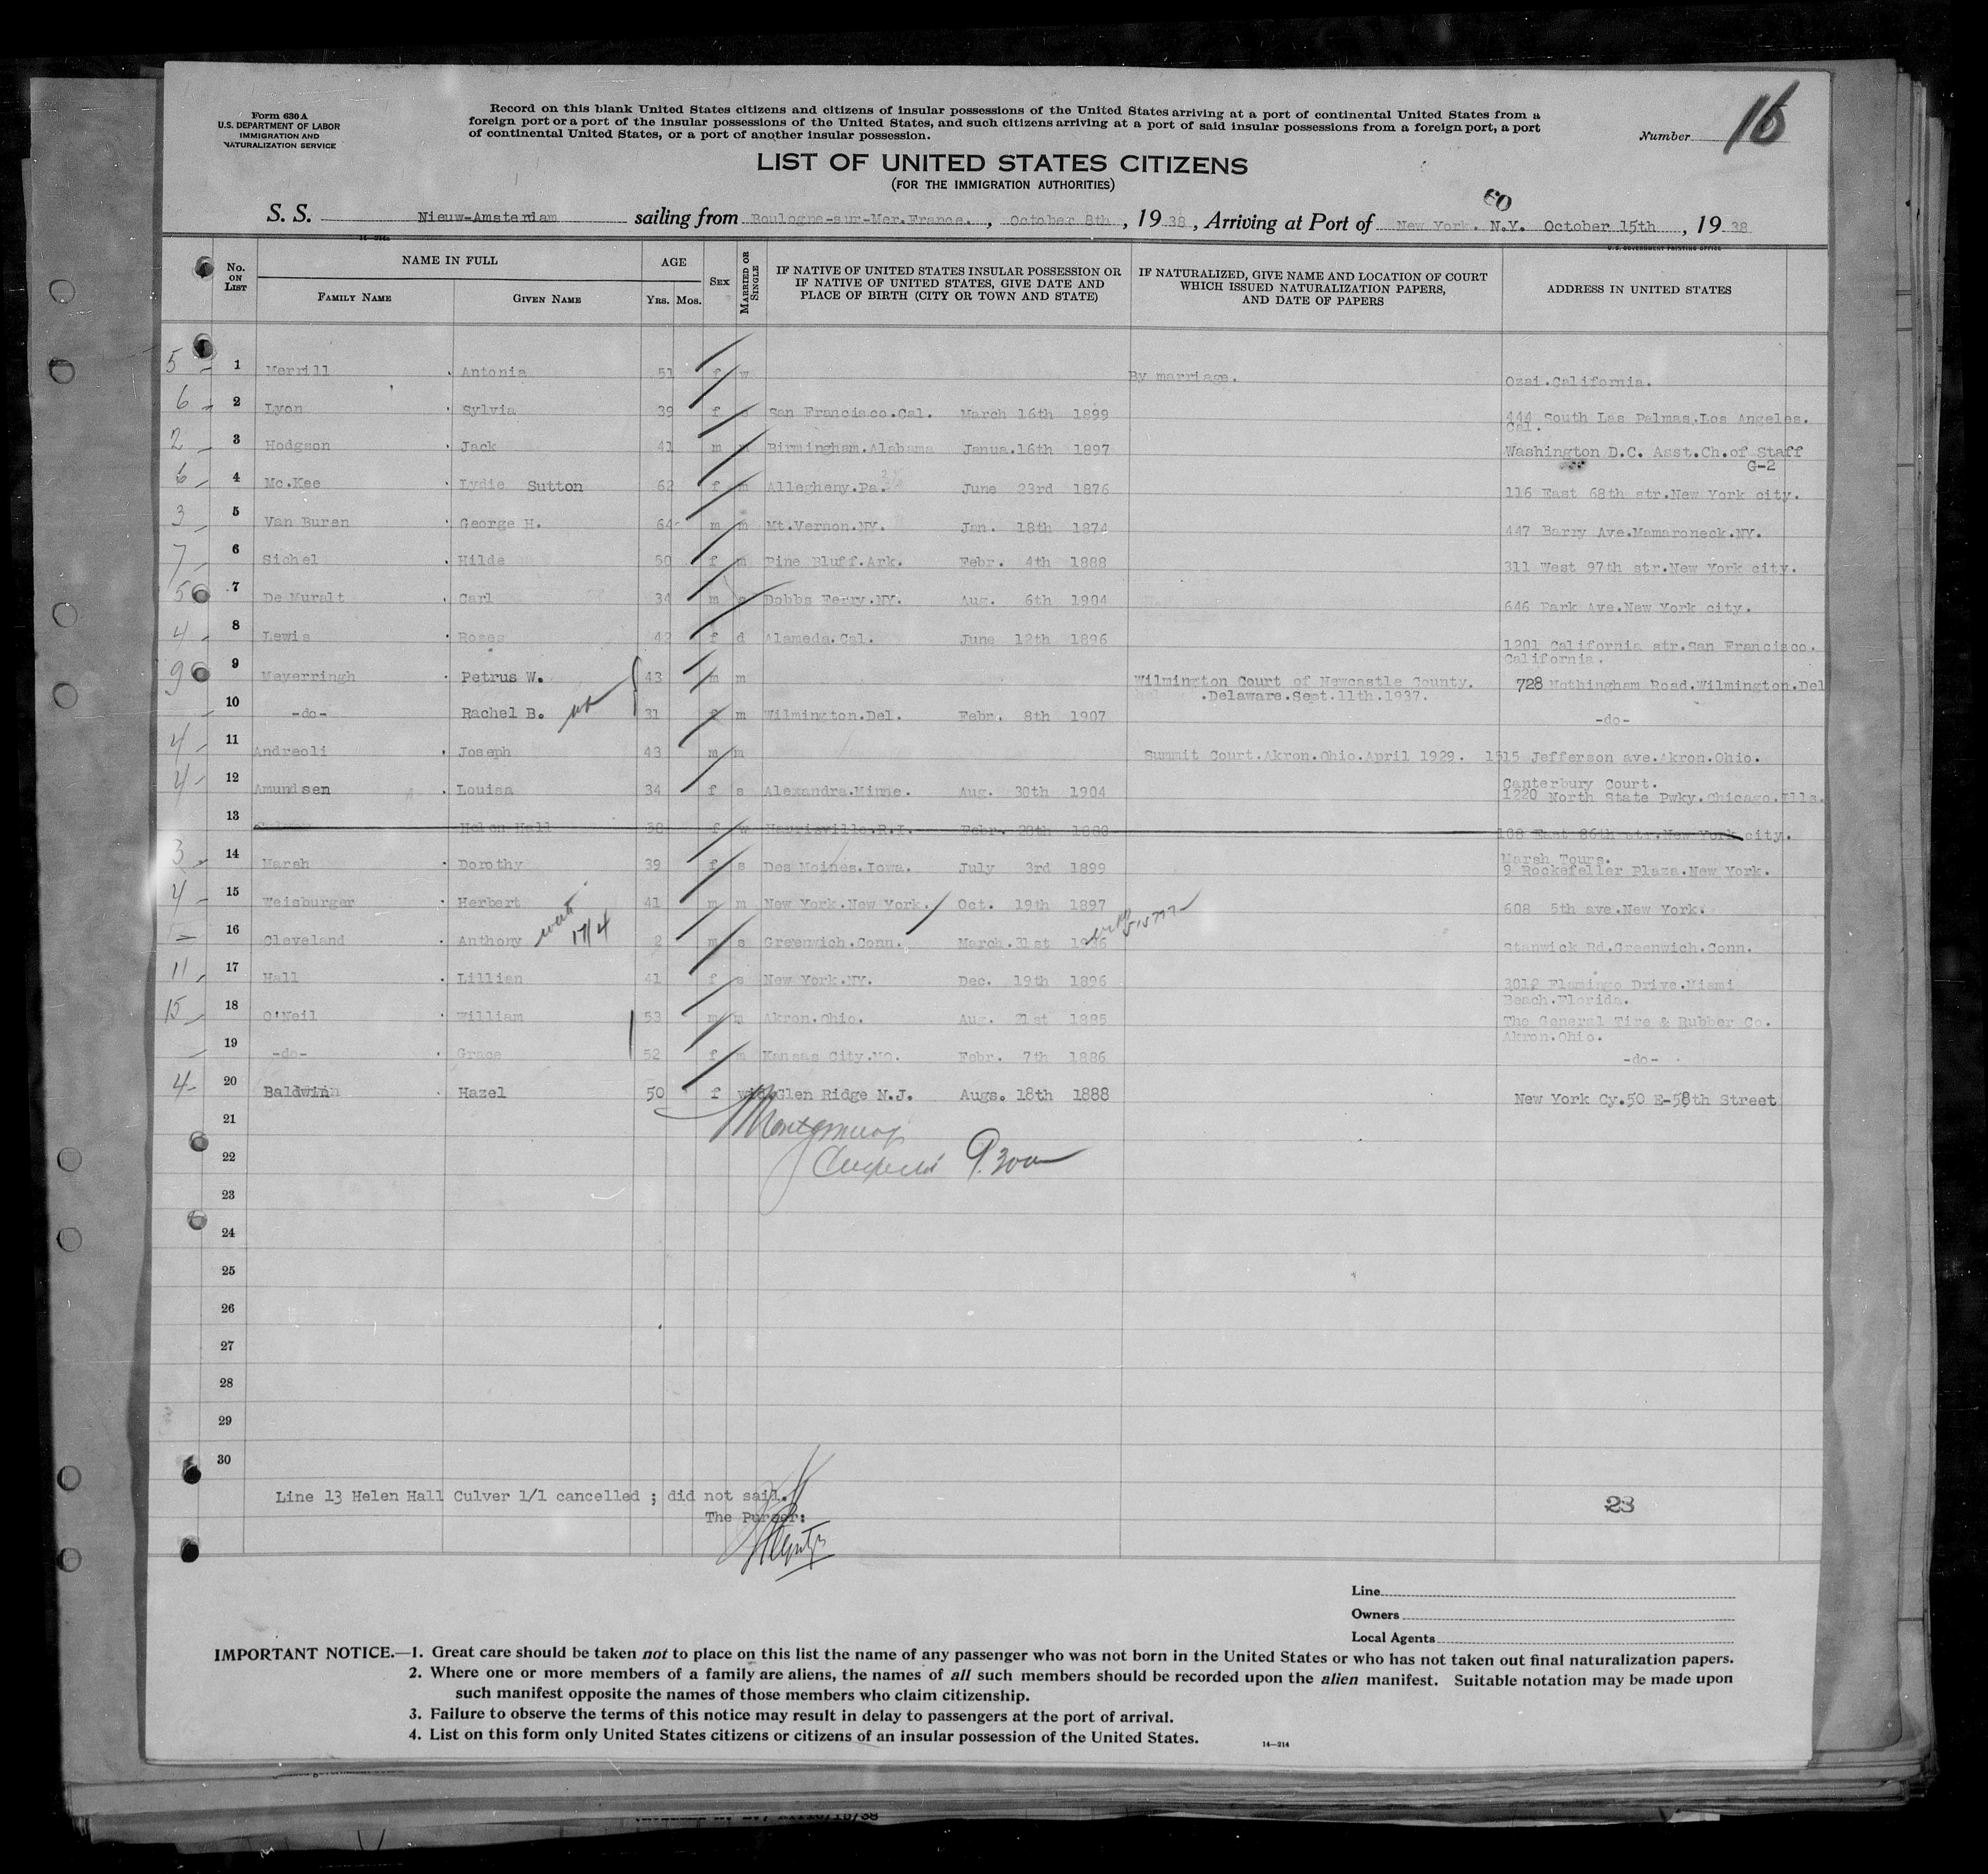 Form 630 A
U.S. DEPARTMENT OF LABOR
IMMIGRATION AND
NATURALIZATION SERVICE
Record on this blank United States citizens and citizens of insular possessions of the United States arriving at a port of continental United States from a
foreign port or a port of the insular possessions of the United States, and such citizens arriving at a port of said insular possessions from a foreign port, a port
of continental United States, or a port of another insular possession.
Number 16
LIST OF UNITED STATES CITIZENS
(FOR THE IMMIGRATION AUTHORITIES)
60
S. S. Nieuw-Amsterdam sailing from Boulogne-sur-Mer.France. , October 8th , 19 38 , Arriving at Port of New York. N.Y. October 15th , 19 38
U.S. GOVERNMENT PRINTING OFFICE
No. ON LIST NAME IN FULL FAMILY NAME GIVEN NAME AGE YRS. MOS. SEX MARRIED OR SINGLE IF NATIVE OF UNITED STATES INSULAR POSSESSION OR IF NATIVE OF UNITED STATES, GIVE DATE AND PLACE OF BIRTH (CITY OR TOWN AND STATE) IF NATURALIZED, GIVE NAME AND LOCATION OF COURT WHICH ISSUED NATURALIZATION PAPERS, AND DATE OF PAPERS ADDRESS IN UNITED STATES
5 1 Merrill Antonia 51 f w By marriage. Ozai.California.
6 2 Lyon Sylvia 39 f s San Francisco.Cal. March 16th 1899 444 South Las Palmas.Los Angeles.
Cal.
2 3 Hodgson Jack 41 m Birmingham.Alabama Janua.16th 1897 Washington D.C. Asst.Ch.of Staff
G-2
6 4 Mc.Kee Lydie Sutton 62 f m Allegheny.Pa. June 23rd 1876 116 East 68th str.New York city.
3 5 Van Buren George H. 64 m m Mt.Vernon.NY. Jan. 18th 1874 447 Barry Ave.Mamaroneck.NY.
7 6 Sichel Hilda 50 f m Pine Bluff.Ark. Febr. 4th 1888 311 West 97th str.New York city.
5 7 De Muralt Carl 34 m s Dobbs Ferry.NY. Aug. 6th 1904 646 Park Ave.New York city.
4 8 Lewis Roses 42 f d Alameda.Cal. June 12th 1896 1201 California str.San Francisco.
California.
9 9 Meyerringh Petrus W. 43 m m Wilmington Court of Newcastle County. 728 Nothingham Road.Wilmington.Del
.Delaware.Sept.11th.1937.
10 -do- Rachel B. 31 f m Wilmington.Del. Febr. 8th 1907 -do-
4 11 Andreoli Joseph 43 m m Summit Court.Akron.Ohio.April 1929. 1515 Jefferson ave.Akron.Ohio.
4 12 Amundsen Louisa 34 f s Alexandra.Minne. Aug. 30th 1904 Canterbury Court.
1220 North State Pwky.Chicago.Ills.
13 Culver Helen Hall 58 f w Harrisville.R.I. Febr. 28th 1880 108 East 86th str.New York city.
3 14 Marsh Dorothy 39 f s Des Moines.Iowa. July 3rd 1899 Marsh Tours.
9 Rockefeller Plaza.New York.
4 15 Weisburger Herbert 41 m m New York.New York. Oct. 19th 1897 608 5th ave.New York.
16 Cleveland Anthony 17/4 2 m s Greenwich.Conn. March.31st 1936 Stanwick Rd.Greenwich.Conn.
11 17 Hall Lillian 41 f s New York.NY. Dec. 19th 1896 3012 Flamingo Drive.Miami
Beach.Florida.
15 18 O'Neil William 53 m m Akron.Ohio. Aug. 21st 1885 The General Tire & Rubber Co.
Akron.Ohio.
19 -do- Grace 52 f m Kansas City.MO. Febr. 7th 1886 -do-
4 20 Baldwin Hazel 50 f Glen Ridge N.J. Augs. 18th 1888 New York Cy.50 E-58th Street
21 Montgomery
22 9.30
23
24
25
26
27
28
29
30
Line 13 Helen Hall Culver 1/1 cancelled ; did not sail. 23
The Purser:
Line
Owners
Local Agents
IMPORTANT NOTICE.—1. Great care should be taken not to place on this list the name of any passenger who was not born in the United States or who has not taken out final naturalization papers.
2. Where one or more members of a family are aliens, the names of all such members should be recorded upon the alien manifest. Suitable notation may be made upon
such manifest opposite the names of those members who claim citizenship.
3. Failure to observe the terms of this notice may result in delay to passengers at the port of arrival.
4. List on this form only United States citizens or citizens of an insular possession of the United States.
14—214